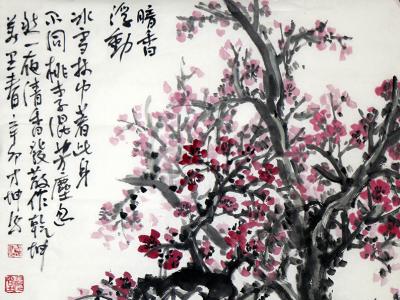 暗香
浮動
冰雪林中著此身
不同桃李混芳塵忽
然一夜清香發散作乾坤
萬里春 辛卯